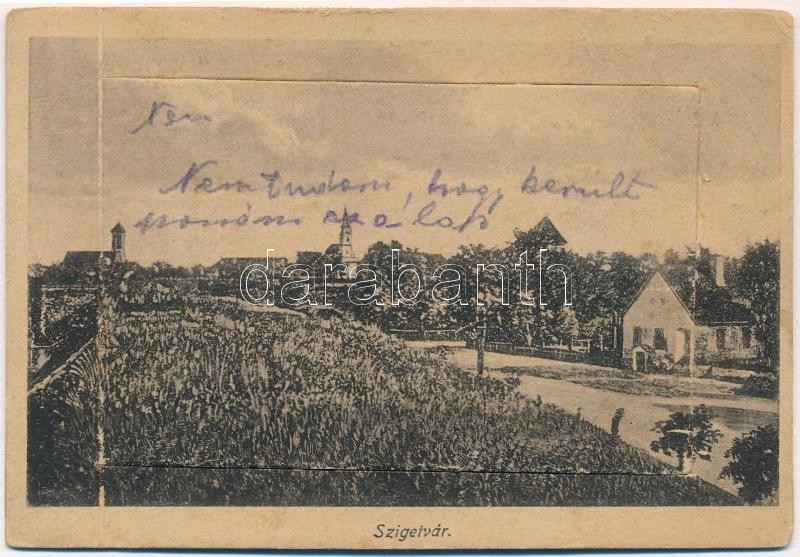 Nem
Nem tudom, hogy került
hozzám ez a lap
darabanth
Szigetvár.